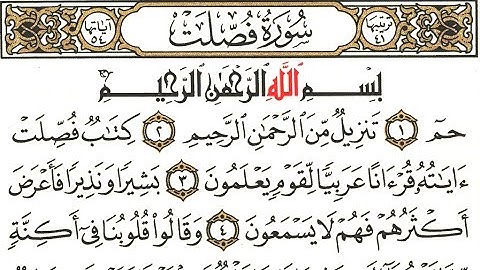 ترتيبها ٤١ سُورَةُ فُصِّلَتْ آياتها ٥٤
بِسْمِ ٱللَّهِ ٱلرَّحْمَٰنِ ٱلرَّحِيمِ
حمٓ ١ تَنزِيلٌ مِّنَ ٱلرَّحْمَٰنِ ٱلرَّحِيمِ ٢ كِتَٰبٌ فُصِّلَتْ
ءَايَٰتُهُۥ قُرْءَانًا عَرَبِيًّا لِّقَوْمٍ يَعْلَمُونَ ٣ بَشِيرًا وَنَذِيرًا فَأَعْرَضَ
أَكْثَرُهُمْ فَهُمْ لَا يَسْمَعُونَ ٤ وَقَالُوا۟ قُلُوبُنَا فِىٓ أَكِنَّةٍ